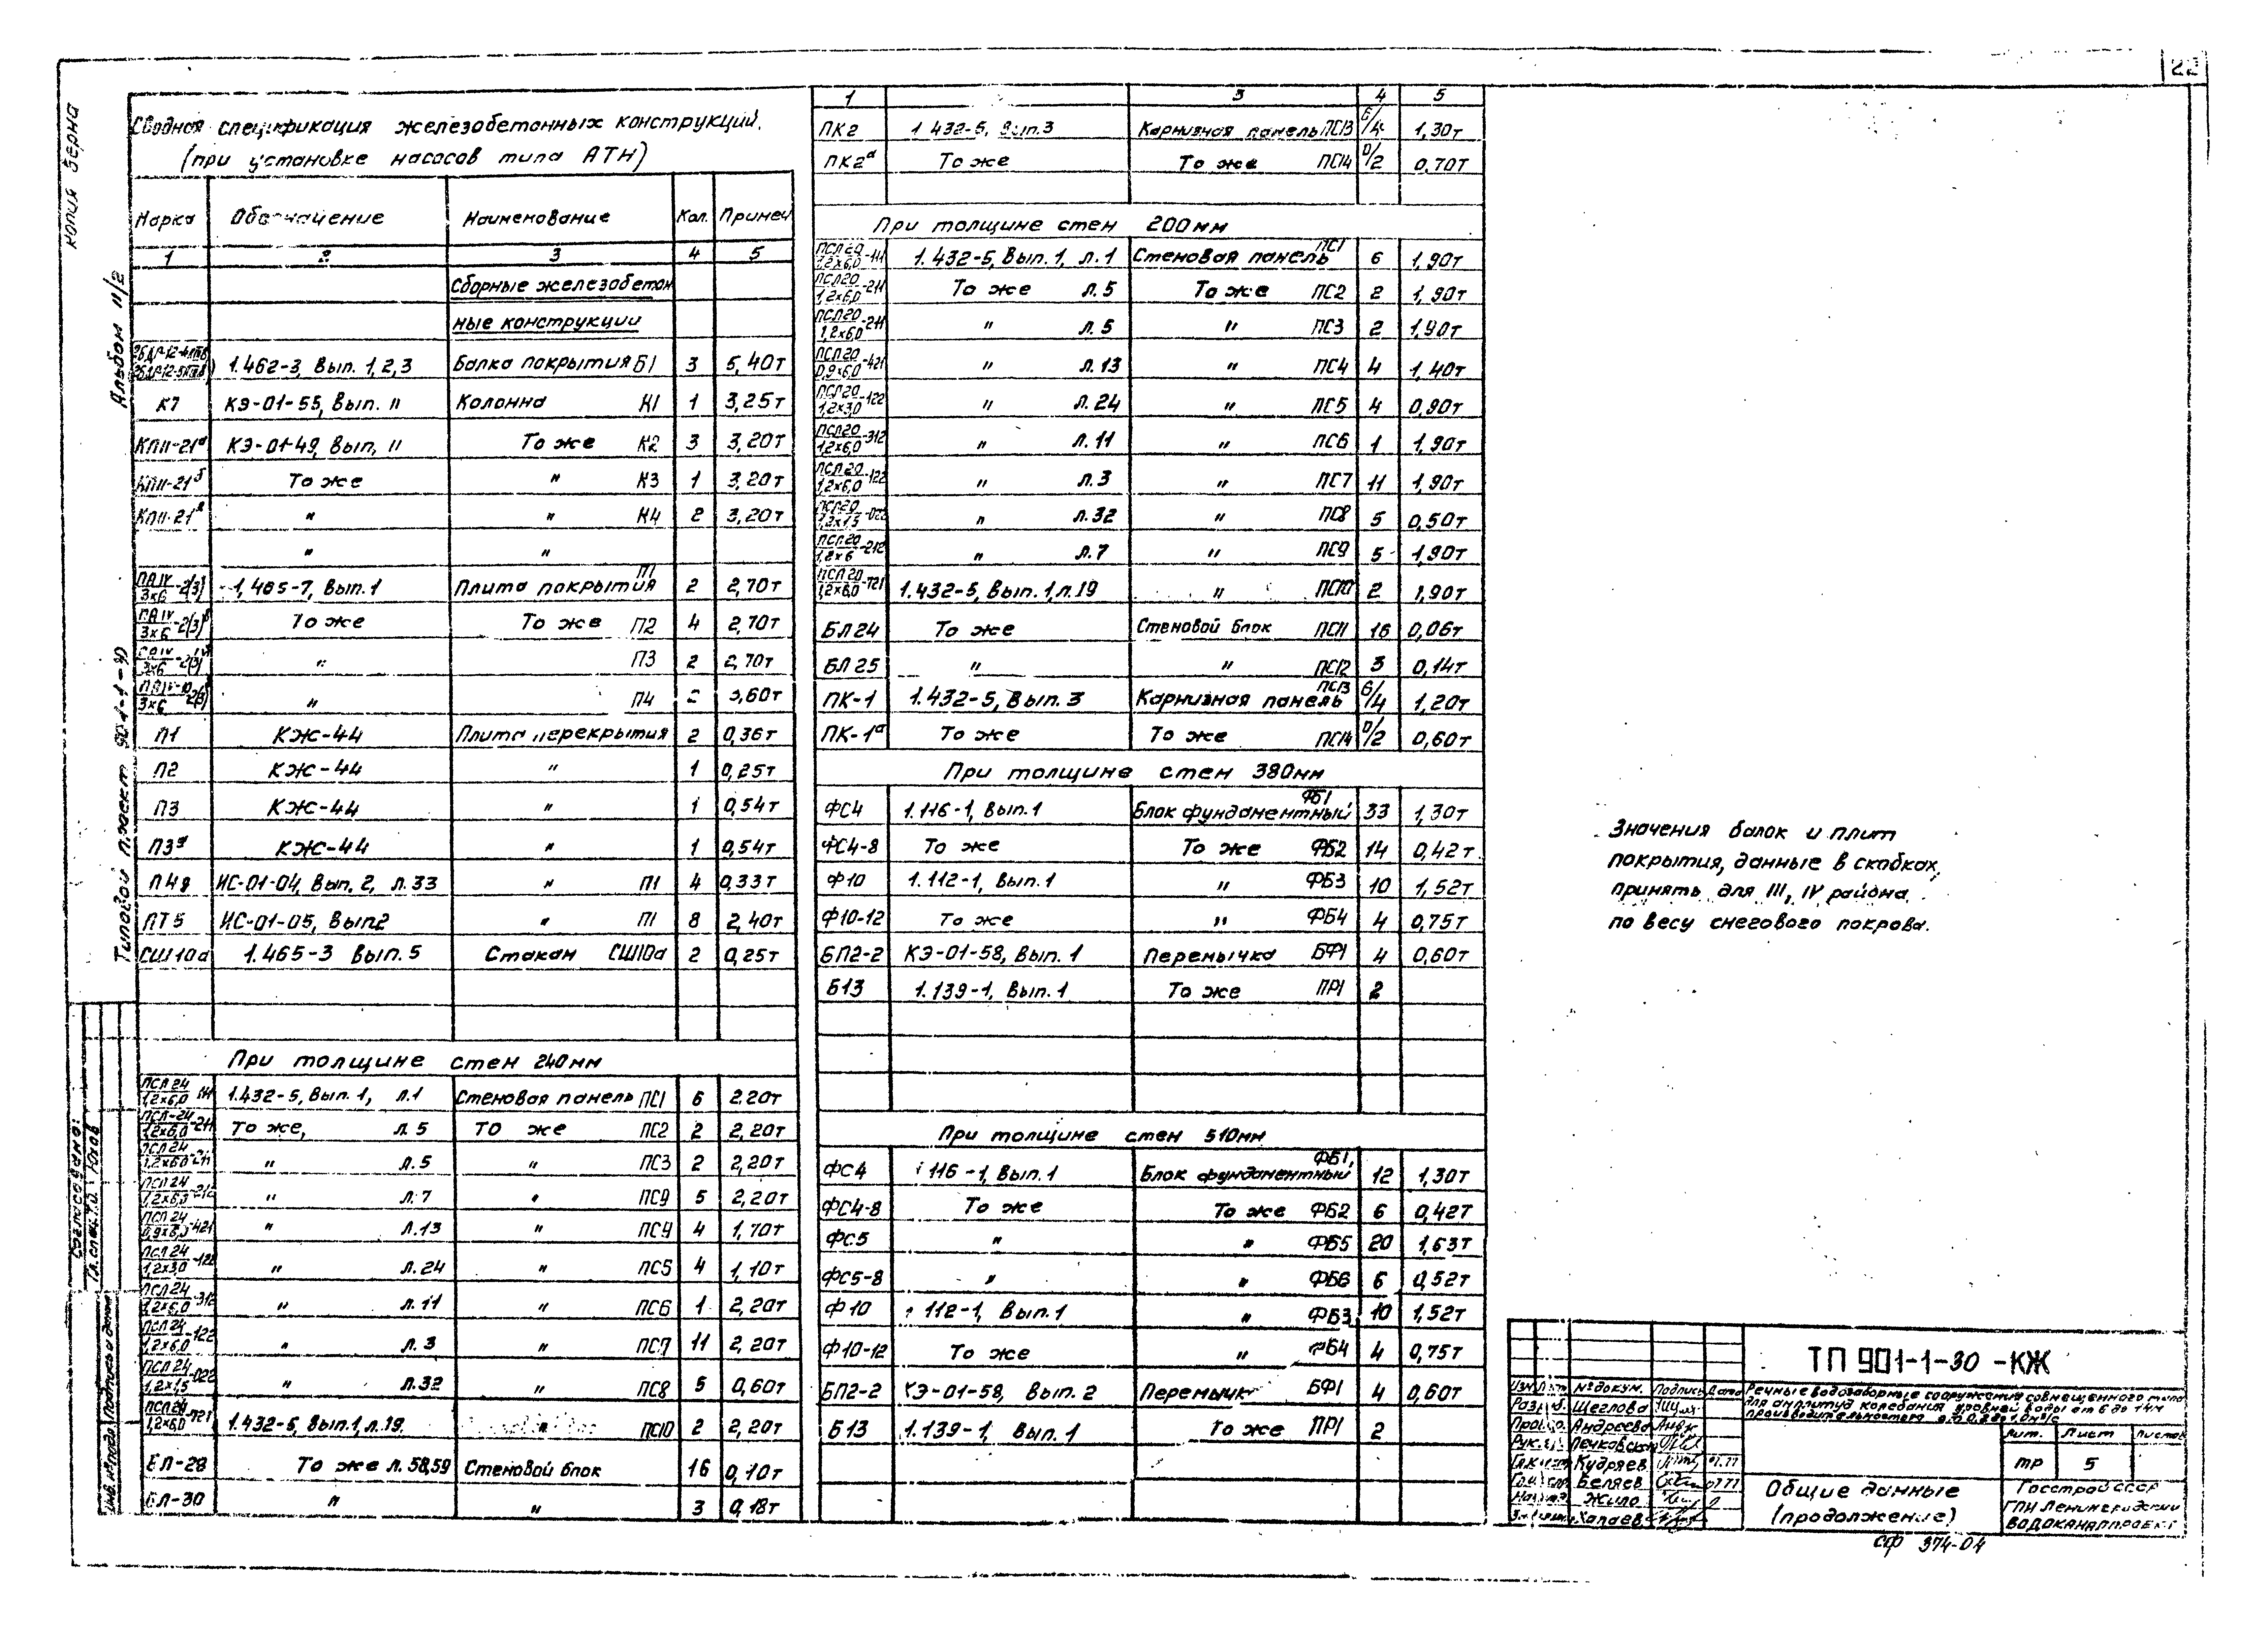 22
копия верна
Альбом II/2
Типовой проект 901-1-30
Сводная спецификация железобетонных конструкций.
(при установке насосов типа АТН)
Марка Обозначение Наименование Кол. Примеч
1 2 3 4 5
Сборные железобетон
ные конструкции
1.462-3, Вып. 1,2,3 Балка покрытия Б1 3 5,40т
К7 КЭ-01-55, Вып. II Колонна К1 1 3,25т
КПII-21а КЭ-01-49, Вып. II То же К2 3 3,20т
КПII-21б То же " К3 1 3,20т
КПII-21 " " К4 2 3,20т
" "
ПАIV/3х6 -2(3) 1.465-7, Вып.1 Плита покрытия П1 2 2,70т
ПАIV/3х6 -2(3) То же То же П2 4 2,70т
3х6 -2(3) " П3 2 2,70т
3х6 " П4
П1 КЖ-44 Плита перекрытия 2 0,36т
П2 КЖ-44 " 1 0,25т
П3 КЖ-44 " 1 0,54т
П3а КЖ-44 " 1 0,54т
П48 ИС-01-04, Вып. 2, л.33 " П1 4 0,33т
ПТ5 ИС-01-05, Вып2 " П1 8 2,40т
СШ10а 1.465-3 Вып. 5 Стакан СШ10а 2 0,25т
При толщине стен 240мм
ПСЛ24/1,2х6,0 -111 1.432-5, Вып. 1, л.1 Стеновая панель ПС1 6 2,20т
ПСЛ-24/1,2х6,0 -211 То же, л.5 То же ПС2 2 2,20т
ПСЛ24/1,2х6,0 -211 " л.5 " ПС3 2 2,20т
ПСЛ24/1,2х6,0 -212 " л.7 " ПС9 5 2,20т
ПСЛ24/0,9х6,0 -421 " л.13 " ПС4 4 1,70т
ПСЛ24/1,2х3,0 -122 " л.24 " ПС5 4 1,10т
ПСЛ24/1,2х6,0 -312 " л.11 " ПС6 1 2,20т
ПСЛ24/1,2х6,0 -122 " л.3 " ПС7 11 2,20т
ПСЛ24/1,2х1,5 -022 " л.32 " ПС8 5 0,60т
ПСЛ24/1,2х6,0 -721 1.432-5, Вып.1, л.19 " ПС10 2 2,20т
БЛ-28 То же л.58,59 Стеновой блок 16 0,10т
БЛ-30 " " 3 0,18т
1 3 4 5
ПК2 1.432-5, Вып.3 Карнизная панель ПС13 6/4 1,30т
ПК2а То же То же ПС14 0/2 0,70т
При толщине стен 200мм
ПСЛ20/1,2х6,0 -111 1.432-5, Вып.1, л.1 Стеновая панель ПС1 6 1,90т
ПСЛ20/1,2х6,0 -211 То же л.5 То же ПС2 2 1,90т
ПСЛ20/1,2х6,0 -211 " л.5 " ПС3 2 1,90т
ПСЛ20/0,9х6,0 -421 " л.13 " ПС4 4 1,40т
ПСЛ20/1,2х3,0 -122 " л.24 " ПС5 4 0,90т
ПСЛ20/1,2х6,0 -312 " л.11 " ПС6 1 1,90т
ПСЛ20/1,2х6,0 -122 " л.3 " ПС7 11 1,90т
ПСЛ20/1,2х1,5 -022 " л.32 " ПС8 5 0,50т
ПСЛ20/1,2х6 -212 " л.7 " ПС9 5 1,90т
ПСЛ20/1,2х6,0 -721 1.432-5, Вып.1, л.19 " ПС10 2 1,90т
БЛ24 То же Стеновой блок ПС11 16 0,06т
БЛ25 " " ПС12 3 0,14т
ПК-1 1.432-5, Вып. 3 Карнизная панель ПС13 6/4 1,20т
ПК-1а То же То же ПС14 0/2 0,60т
При толщине стен 380мм
ФС4 1.116-1, Вып.1 Блок фундаментный ФБ1 33 1,30т
ФС4-8 То же То же ФБ2 14 0,42т
Ф10 1.112-1, Вып.1 " ФБ3 10 1,52т
Ф10-12 То же " ФБ4 4 0,75т
БП2-2 КЭ-01-58, Вып. 1 Перемычка БФ1 4 0,60т
Б13 1.139-1, Вып. 1 То же ПР1 2
При толщине стен 510мм
ФС4 116-1, Вып.1 Блок фундаментный ФБ1, 12 1,30т
ФС4-8 То же То же ФБ2 6 0,42т
ФС5 " " ФБ5 20 1,63т
ФС5-8 " " ФБ6 6 0,52т
Ф10 112-1, Вып.1 " ФБ3 10 1,52т
Ф10-12 То же " ФБ4 4 0,75т
БП2-2 КЭ-01-58, Вып. 2 Перемычк БФ1 4 0,60т
Б13 1.139-1, Вып. 1 То же ПР1 2
Значения балок и плит
покрытия, данные в скобках,
принять для III, IV района
по весу снегового покрова.
Согласовано:
Инв. № подл. Подпись и дата
ТП 901-1-30 -КЖ
Изм Лист № докум. Подпись Дата
Речные водозаборные сооружения совмещенного типа
для амплитуд колебания уровней воды от 6 до 14м
производительностью
Щеглова
Андреева
Кудряев 07.77
Беляев 07.77
Жило
Лит. Лист Листов
тр 5
Общие данные
(продолжение)
Госстрой СССР
ГПИ Ленинградский
Водоканалпроект
СФ 374-04